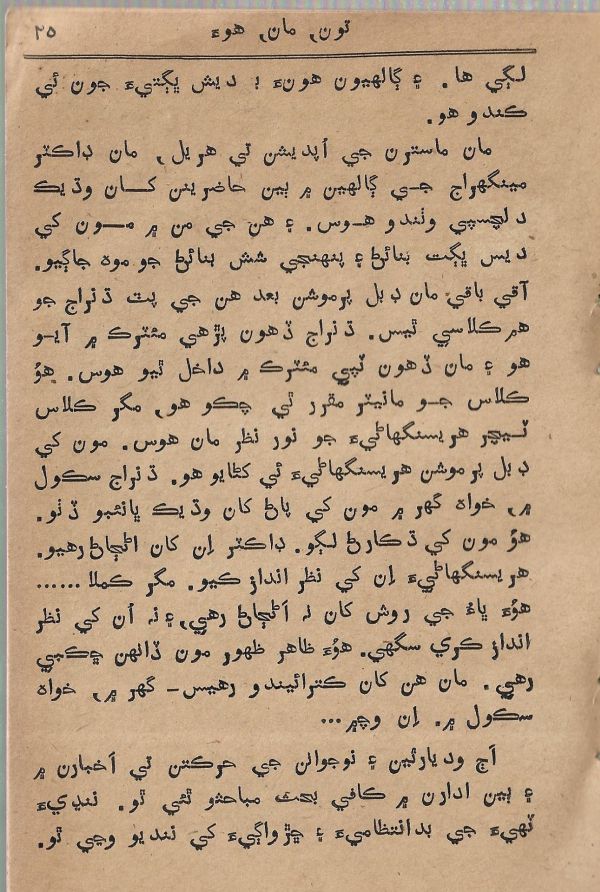 تون، مان، هوءَ
٢٥
لڳي ها. ۽ ڳالهيون هونءَ ۽ ديش ڀڳتيءَ جون ئي
ڪندو هو.
مان ماسترن جي اُپديشن تي هريل، مان ڊاڪٽر
مينگهراج جي ڳالهين ۾ ٻين حاضرينن کان وڌيڪ
دلچسپي وٺندو هوس. ۽ هن جي من ۾ مون کي
ديس ڀڳت بنائڻ ۽ پنهنجي شش بنائڻ جو موهه جاڳيو.
آڪي باقي مان ڊبل پرموشن بعد هن جي پٽ ڌنراج جو
هم ڪلاسي ٿيس. ڌنراج ڏهون پڙهي مئٽرڪ ۾ آيو
هو ۽ مان ڏهون ٽپي مئٽرڪ ۾ داخل ٿيو هوس. هوُ
ڪلاس جو مانيٽر مقرر ٿي چڪو هو، مگر ڪلاس
ٽيچر هريسنگهاڻيءَ جو نور نظر مان هوس. مون کي
ڊبل پرموشن هريسنگهاڻيءَ ئي کڻايو هو. ڌنراج سڪول
۾، خواه گهر ۾ مون کي پاڻ کان وڌيڪ ڀائنبو ڏٺو.
هوُ مون کي ڌڪارڻ لڳو. ڊاڪٽر اِن کان اڻڄاڻ رهيو.
هريسنگهاڻيءَ اِن کي نظر انداز ڪيو. مگر ڪملا......
هوُءَ ڀاءُ جي روش کان نہ اَڻڄاڻ رهي، ۽ نہ اُن کي نظر
انداز ڪري سگهي. هوُءَ ظاهر ظهور مون ڏانهن ڇڪبي
رهي. مان هن کان ڪترائيندو رهيس- گهر ۾، خواه
سڪول ۾. اِن وچ ۾...
اَڄ وديارٿين ۽ نوجوانن جي حرڪتن تي اَخبارن ۾
۽ ٻين ادارن ۾ ڪافي بحث مباحثو ٿئي ٿو. ننڍيءَ
ٽهيءَ جي بدانتظاميءَ ۽ ڇڙواڳيءَ کي ننديو وڃي ٿو.